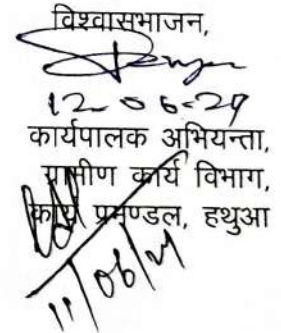 विश्वासभाजन,
12-06-24
कार्यपालक अभियन्ता,
ग्रामीण कार्य विभाग,
कार्य प्रमण्डल, हथुआ
11/06/24